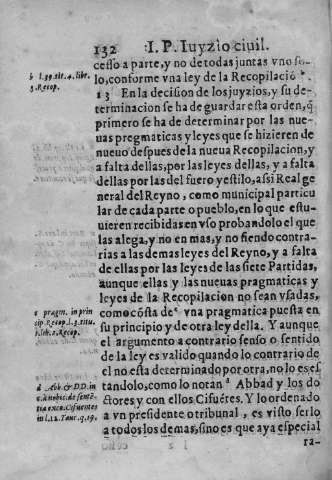 132 I. P. Iuyzio ciuil.
cesso a parte, y no de todas juntas vno so-
lo, conforme vna ley de la Recopilació b.
b l.39.tit.4.libr.
3.Recop.
13 En la decision de los juyzios, y su de-
terminacion se ha de guardar esta orden, q̃
primero se ha de determinar por las nue-
uas pregmaticas y leyes que se hizieren de
nueuo despues de la nueua Recopilacion, y
a falta dellas, por las leyes dellas, y a falta
dellas por las del fuero y estilo, assi Real ge
neral del Reyno, como municipal particu
lar de cada parte o pueblo, en lo que estu-
uieren recibidas en vso probandolo el que
las alega, y no en mas, y no siendo contra-
rias a las demas leyes del Reyno, y a falta
de ellas por las leyes de las siete Partidas,
aunque ellas y las nueuas pragmaticas y
leyes de la Recopilacion no sean vsadas,
como cósta de c vna pragmatica puesta en
su principio y de otra ley della. Y aunque
el argumento a contrario senso o sentido
de la ley es valido quando lo contrario de
el no esta determinado por otra, no lo es es
tandolo, como lo notan d Abbad y los do
ctores y con ellos Cifuétes. Y lo ordenado
a vn presidente o tribunal, es visto serlo
a todos los demas, sino es que aya especial
c pragm. in prin
cip. Recop.l.3.titu.
1.lib.2.Recop.
d Abb. & DD. in
l.12.Taur.q.19.
ra-